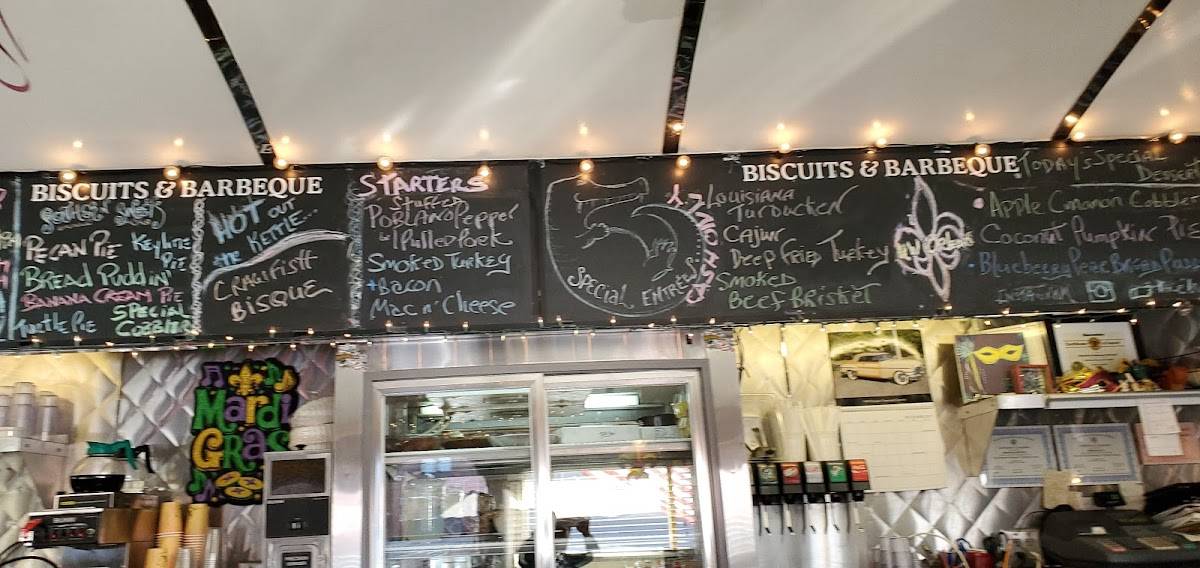 BISCUITS & BARBEQUE
PECAN PIE
KEYLIME PIE
BREAD PUDDIN'
BANANA CREAM PIE
SPECIAL COBBLER
HOT OUT
the KETTLE...
CRAWFISH
BISQUE
STARTERS
Stuffed
POBLANO PEPPER
Pulled Pork
SMOKED TURKEY
+ BACON
MAC N' CHEESE
SPECIAL ENTREES
BISCUITS & BARBEQUE
LOUISIANA
TURDUCKEN
CAJUN
DEEP FRIED TURKEY
SMOKED
BEEF BRISKET
TODAY'S SPECIAL
DESSERT
APPLE CINAMON COBBLER
COCONUT PUMPKIN PIE
BLUEBERRY PEAR BREAD
INSTAGRAM
Mardi
Gras